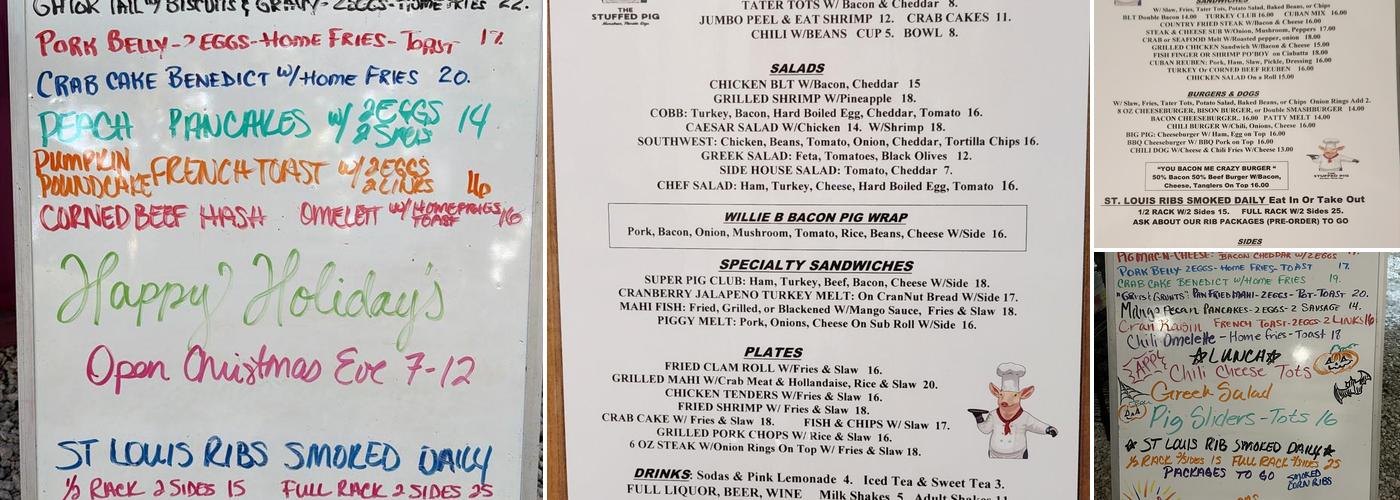 GATOR TAIL W/ BISCUITS & GRAVY - 2EGGS - HOME FRIES 22.
PORK BELLY - 2 EGGS - HOME FRIES - TOAST 17.
CRAB CAKE BENEDICT W/ HOME FRIES 20.
PEACH PANCAKES W/ 2 EGGS 14
PUMPKIN
POUNDCAKE FRENCH TOAST W/ 2 EGGS
2 LINKS 16
CORNED BEEF HASH OMELETT W/ HOMEFRIES
TOAST 16
Happy Holiday's
Open Christmas Eve 7-12
ST LOUIS RIBS SMOKED DAILY
1/2 RACK 2 SIDES 15 FULL RACK 2 SIDES 25
THE
STUFFED PIG
TATER TOTS W/ Bacon & Cheddar 8.
JUMBO PEEL & EAT SHRIMP 12. CRAB CAKES 11.
CHILI W/BEANS CUP 5. BOWL 8.
SALADS
CHICKEN BLT W/Bacon, Cheddar 15
GRILLED SHRIMP W/Pineapple 18.
COBB: Turkey, Bacon, Hard Boiled Egg, Cheddar, Tomato 16.
CAESAR SALAD W/Chicken 14. W/Shrimp 18.
SOUTHWEST: Chicken, Beans, Tomato, Onion, Cheddar, Tortilla Chips 16.
GREEK SALAD: Feta, Tomatoes, Black Olives 12.
SIDE HOUSE SALAD: Tomato, Cheddar 7.
CHEF SALAD: Ham, Turkey, Cheese, Hard Boiled Egg, Tomato 16.
WILLIE B BACON PIG WRAP
Pork, Bacon, Onion, Mushroom, Tomato, Rice, Beans, Cheese W/Side 16.
SPECIALTY SANDWICHES
SUPER PIG CLUB: Ham, Turkey, Beef, Bacon, Cheese W/Side 18.
CRANBERRY JALAPENO TURKEY MELT: On CranNut Bread W/Side 17.
MAHI FISH: Fried, Grilled, or Blackened W/Mango Sauce, Fries & Slaw 18.
PIGGY MELT: Pork, Onions, Cheese On Sub Roll W/Side 16.
PLATES
FRIED CLAM ROLL W/Fries & Slaw 16.
GRILLED MAHI W/Crab Meat & Hollandaise, Rice & Slaw 20.
CHICKEN TENDERS W/Fries & Slaw 16.
FRIED SHRIMP W/ Fries & Slaw 18.
CRAB CAKE W/ Fries & Slaw 18. FISH & CHIPS W/ Slaw 17.
GRILLED PORK CHOPS W/ Rice & Slaw 16.
6 OZ STEAK W/Onion Rings On Top W/ Fries & Slaw 18.
DRINKS: Sodas & Pink Lemonade 4. Iced Tea & Sweet Tea 3.
FULL LIQUOR, BEER, WINE Milk Shakes 5 Adult Shakes 11
SANDWICHES
W/ Slaw, Fries, Tater Tots, Potato Salad, Baked Beans, or Chips
BLT Double Bacon 14.00 TURKEY CLUB 16.00 CUBAN MIX 16.00
COUNTRY FRIED STEAK W/Bacon & Cheese 16.00
STEAK & CHEESE SUB W/Onion, Mushroom, Peppers 17.00
CRAB or SEAFOOD Melt W/Roasted pepper, onion 18.00
GRILLED CHICKEN Sandwich W/Bacon & Cheese 15.00
FISH FINGER OR SHRIMP PO'BOY on Ciabatta 18.00
CUBAN REUBEN: Pork, Ham, Slaw, Pickle, Dressing 16.00
TURKEY Or CORNED BEEF REUBEN 16.00
CHICKEN SALAD On a Roll 15.00
BURGERS & DOGS
W/ Slaw, Fries, Tater Tots, Potato Salad, Baked Beans, or Chips Onion Rings Add 2.
8 OZ CHEESEBURGER, BISON BURGER, or Double SMASHBURGER 14.00
BACON CHEESEBURGER.. 16.00 PATTY MELT 14.00
CHILI BURGER W/Chili, Onions, Cheese 16.00
BIG PIG: Cheeseburger W/ Ham, Egg on Top 16.00
BBQ Cheeseburger W/ BBQ Pork on Top 16.00
CHILI DOG W/Cheese & Chili Fries W/Cheese 13.00
STUFFED PIG
"YOU BACON ME CRAZY BURGER "
50% Bacon 50% Beef Burger W/Bacon,
Cheese, Tanglers On Top 16.00
ST. LOUIS RIBS SMOKED DAILY Eat In Or Take Out
1/2 RACK W/2 Sides 15. FULL RACK W/2 Sides 25.
ASK ABOUT OUR RIB PACKAGES (PRE-ORDER) TO GO
SIDES
PIG MAC-N-CHEESE: BACON CHEDDAR W/2EGGS
PORK BELLY - 2EGGS - HOME FRIES - TOAST 17.
CRAB CAKE BENEDICT W/HOME FRIES 19.
"GRITS & GRUNTS" PAN FRIED MAHI - 2EGGS - POT - TOAST 20.
Mango Pecan PANCAKES - 2 EGGS - 2 SAUSAGE 14.
Cran Raisin FRENCH TOAST - 2EGGS - 2 LINKS 16
Chili Omelette - Home fries - Toast 18
LUNCH
APPY Chili Cheese Tots
Greek Salad
Pig Sliders - Tots 16
ST LOUIS RIB SMOKED DAILY
1/2 RACK 2/SIDES 15 FULL RACK 2/SIDES 25
PACKAGES TO GO SMOKED
CORN RIBS